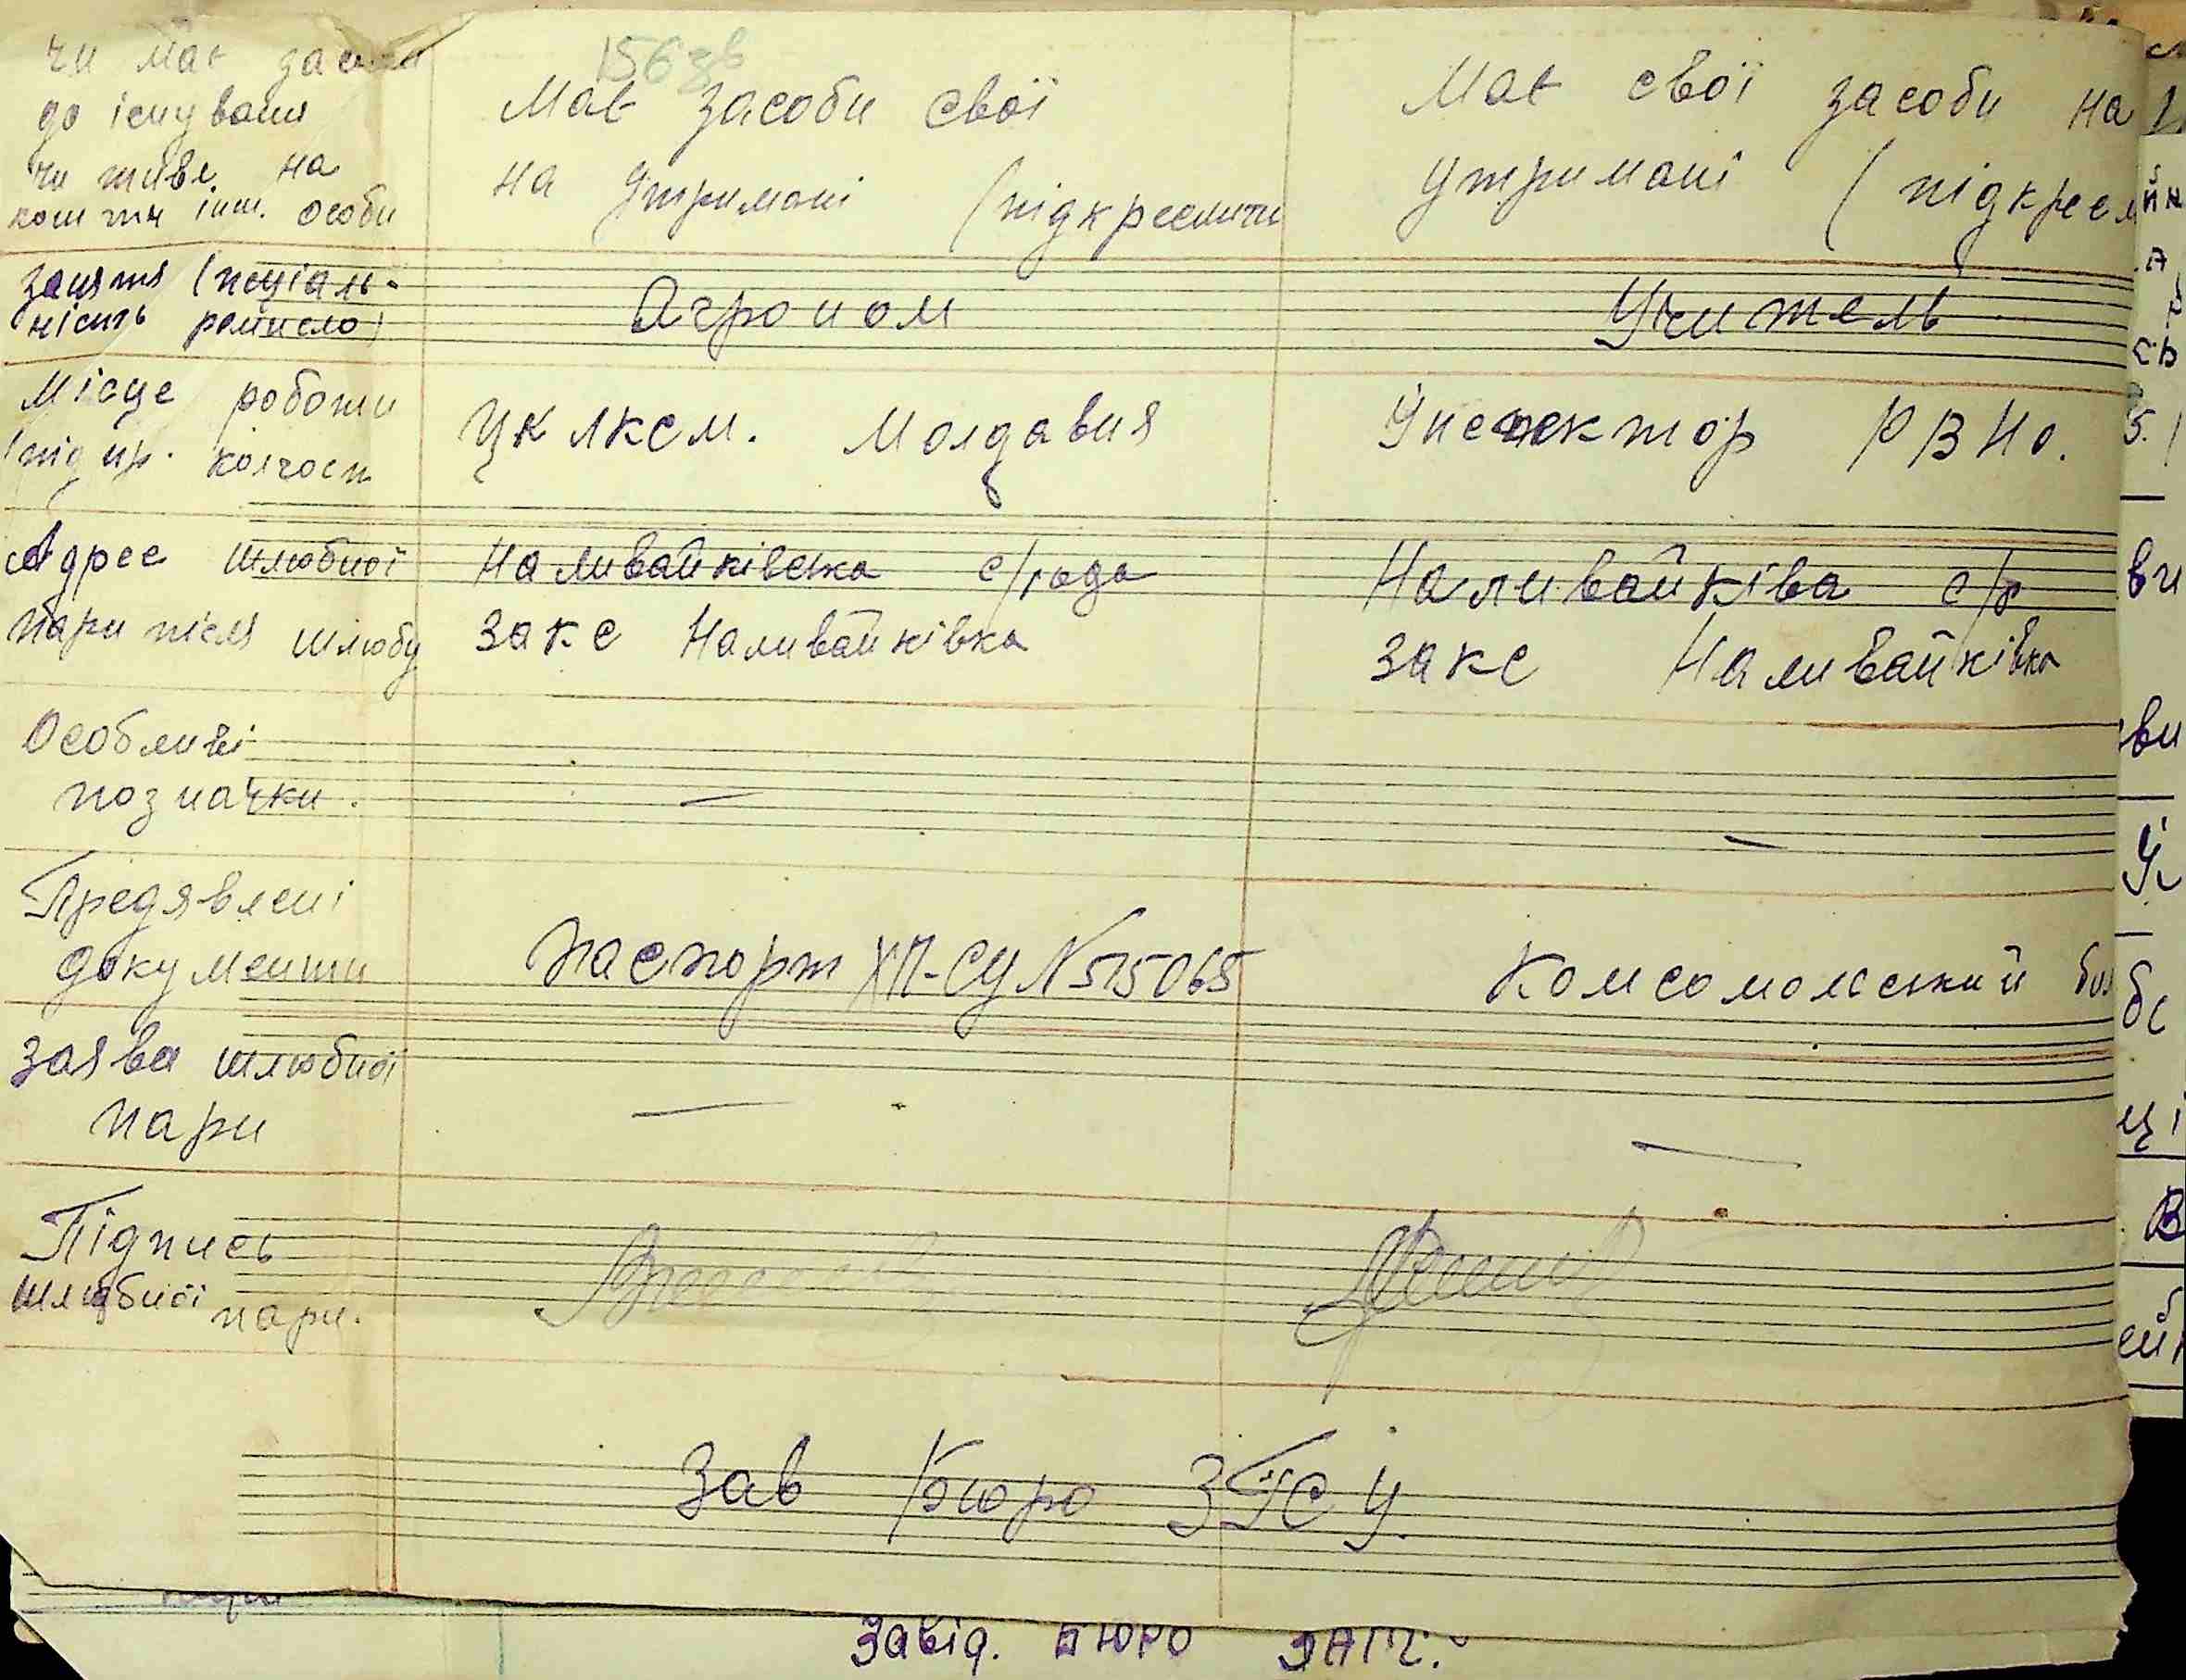 156 зв
чи має засоби
до існування
чи живе на
кошти інш. особи
Має засоби свої
на утримані (підкреслити
Має свої засоби на
утримані (підкресл
Заняття (пеціаль-
ність ремисло)
Агроном
Учитель
Місце роботи
(підпр. колгосп
ЦК ЛКСМ. Молдавия
Інспектор РВНО.
Адрес шлюбної
пари після шлюбу
Наливайківська с/рада
ЗАКС Наливайківка
Наливайківа с/р
ЗАКС Наливайківка
Особливі
позначки.
—
—
Предявлені
документи
паспорт ХП-СУ N 515065
Комсомольський біл
Заява шлюбної
пари
—
—
Підпись
шлюбної пари.
Зав Бюро ЗГСУ.
Завід. БЮРО